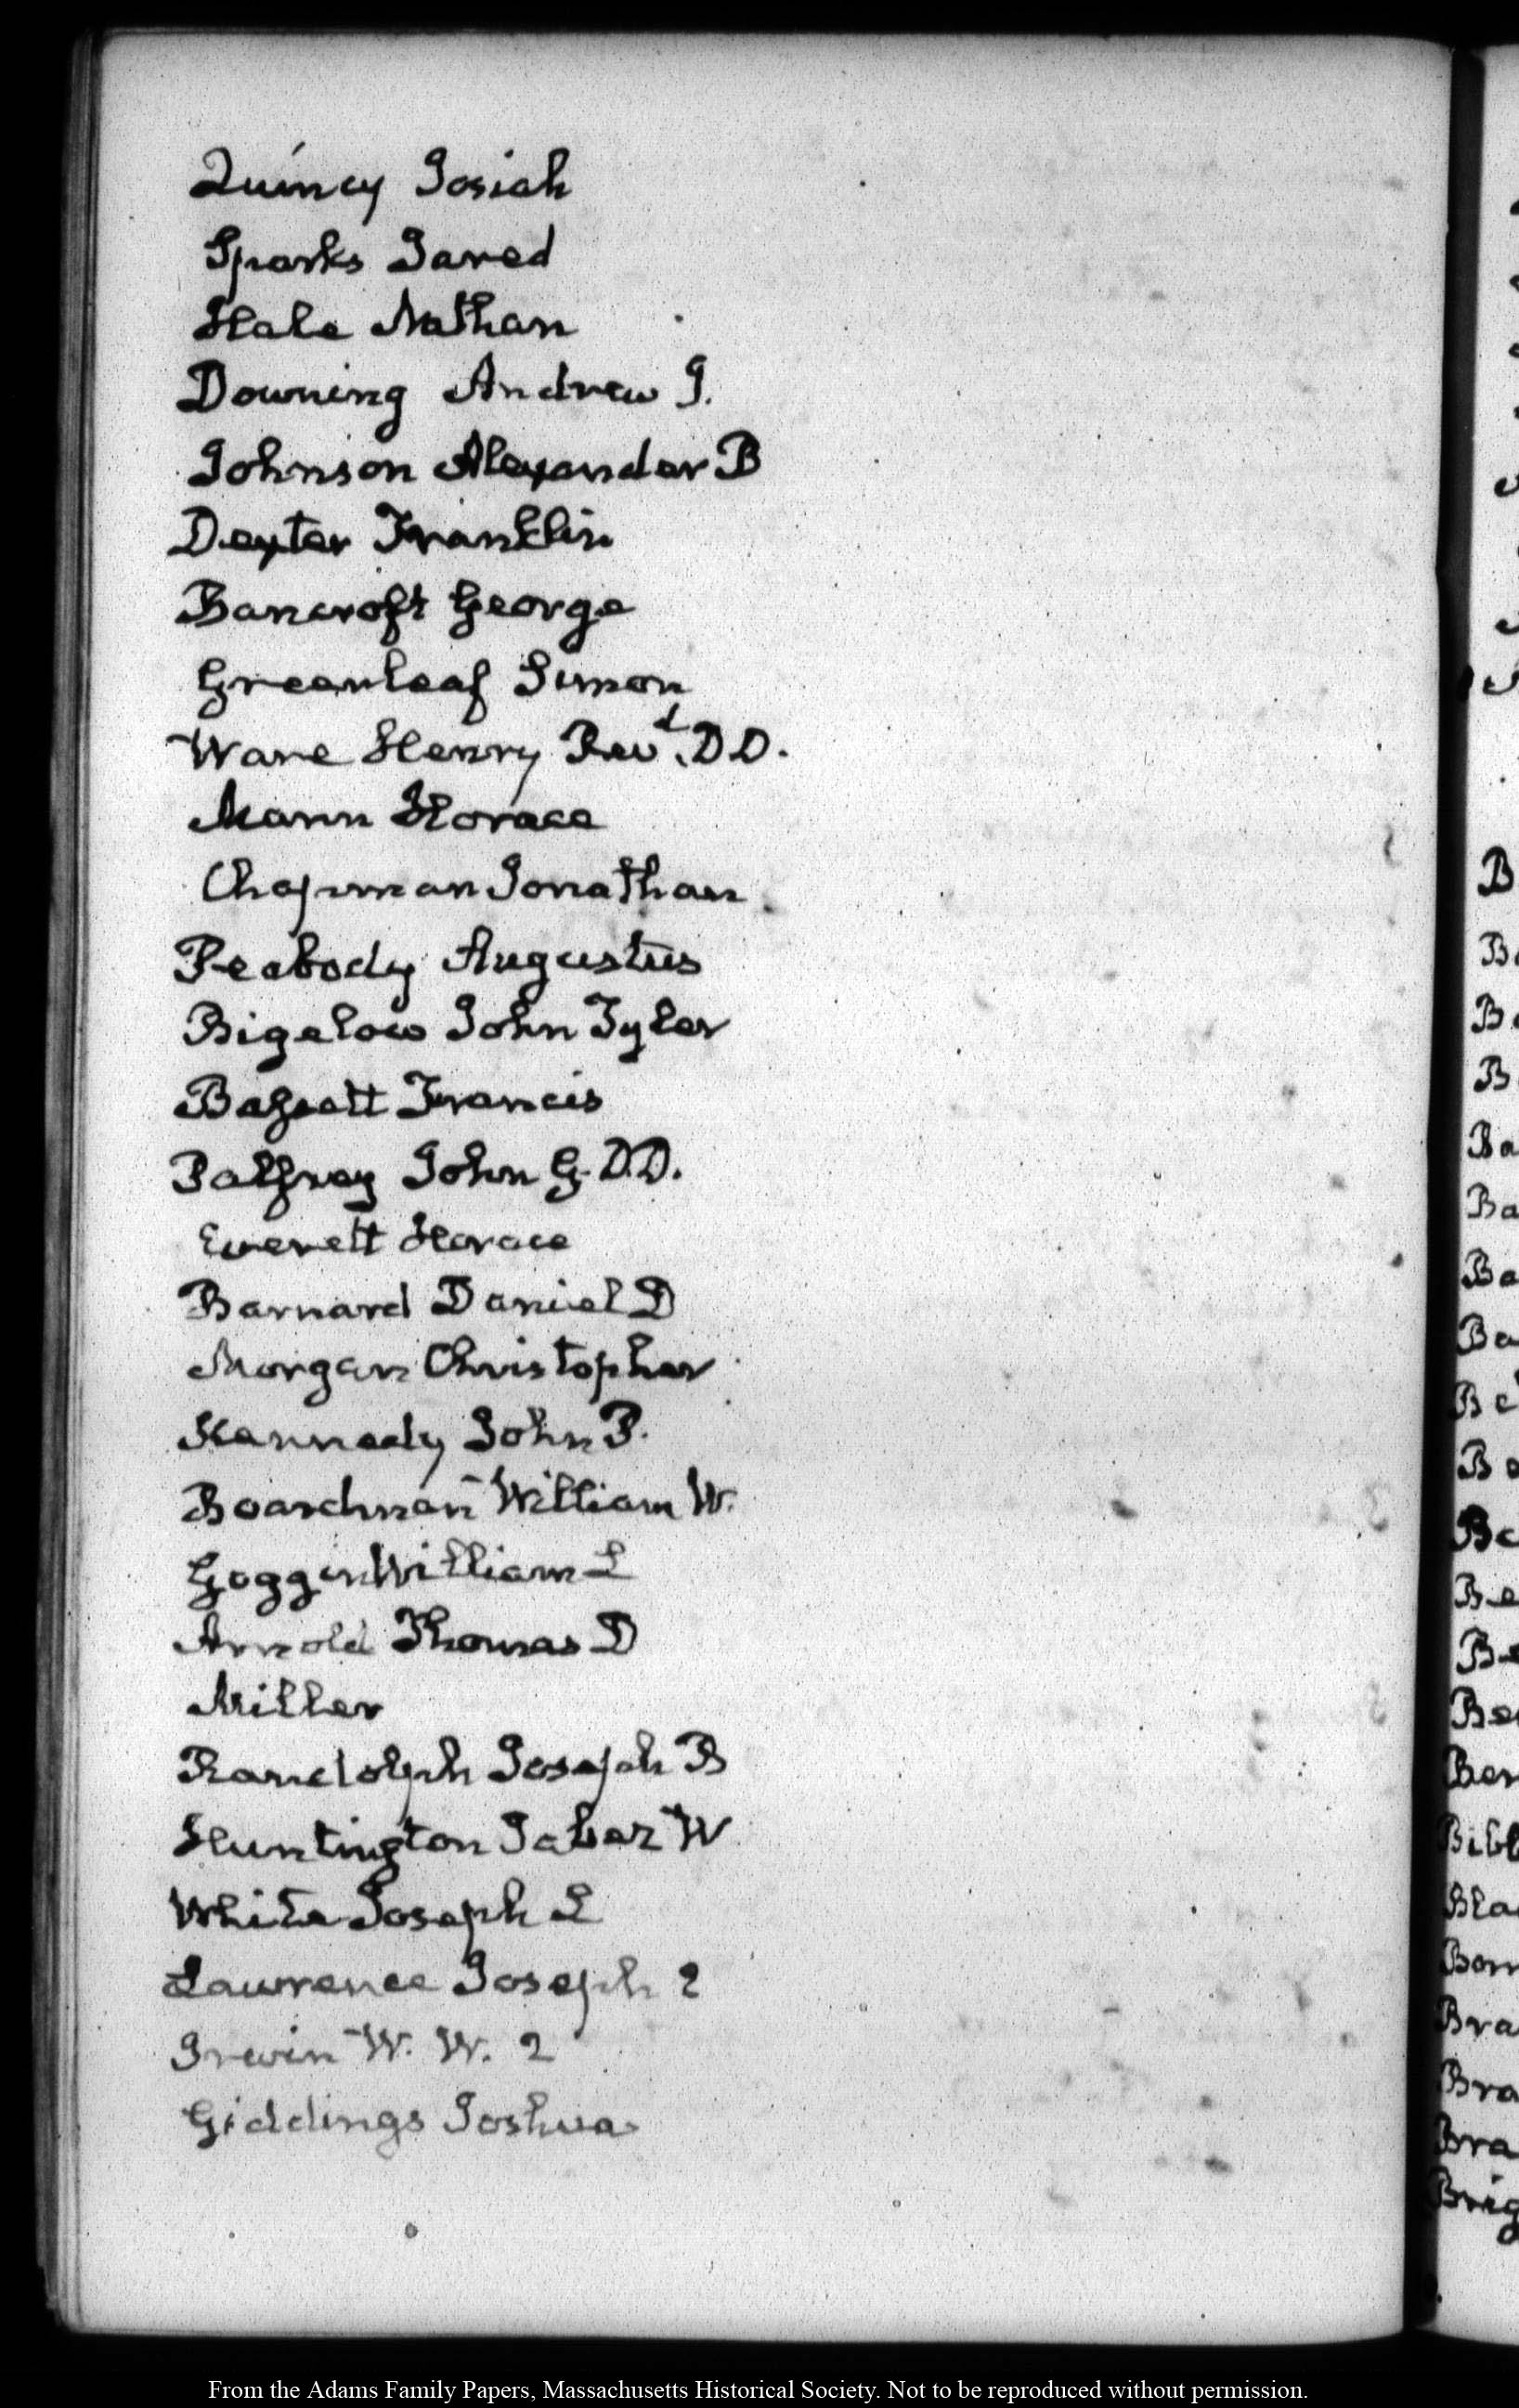 Quincy Josiah
Sparks Jared
Hale Nathan
Downing Andrew J.
Johnson Alexander B
Dexter Franklin
Bancroft George
Greenleaf Simon
Ware Henry Revd. D D.
Mann Horace
Chapman Jonathan
Peabody Augustus
Bigelow John Tyler
Bassett Francis
Palfrey John G. D.D.
Everett Horace
Barnard Daniel D
Morgan Christopher
Kennedy John P.
Boardman William W.
Goggin William L
Arnold Thomas D
Miller
Randolph Joseph B
Huntington Jabez W
White Joseph L
Lawrence Joseph 2
Irwin W. W. 2
Giddings Joshua
B
Ba
Ba
Ba
Ba
Be
Be
Ber
Bibl
Bla
Bra
Bra
Bra
Brig
From the Adams Family Papers, Massachusetts Historical Society. Not to be reproduced without permission.